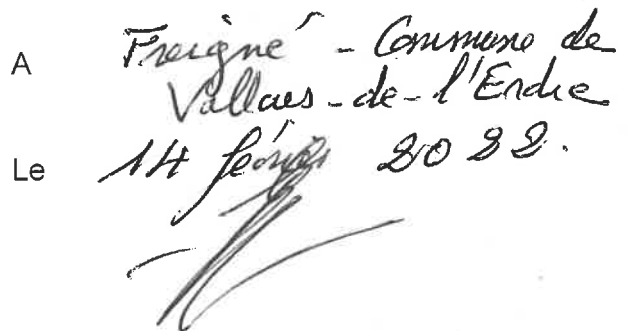 A Freigné - Commune de
Vallons-de-l'Erdre
Le 14 février 2022.